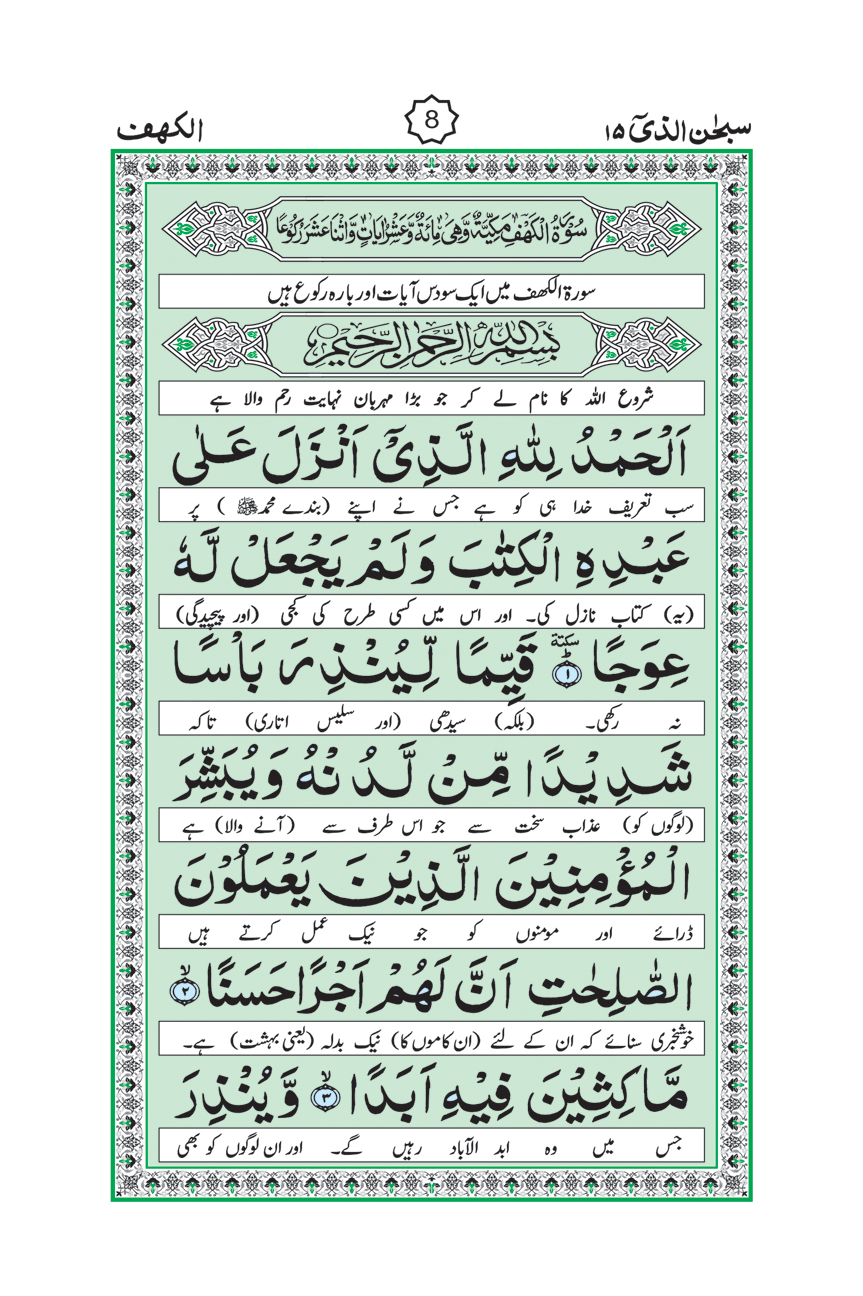 سبحٰن الذیٓ ۱۵
8
الكهف
سُوْرَةُ الْكَهْفِ مَكِّيَّةٌ وَّهِيَ مِائَةٌ وَّعَشْرُ اٰيَاتٍ وَّاثْنَا عَشَرَ رُكُوْعًا
سورة الکھف میں ایک سو دس آیات اور بارہ رکوع ہیں
بِسْمِ اللّٰهِ الرَّحْمٰنِ الرَّحِيْمِ
شروع اللہ کا نام لے کر جو بڑا مہربان نہایت رحم والا ہے
اَلْحَمْدُ لِلّٰهِ الَّذِيْٓ اَنْزَلَ عَلٰى
سب تعریف خدا ہی کو ہے جس نے اپنے (بندے محمد ﷺ) پر
عَبْدِهِ الْكِتٰبَ وَلَمْ يَجْعَلْ لَّهٗ
(یہ) کتاب نازل کی۔ اور اس میں کسی طرح کی کجی (اور پیچیدگی)
عِوَجًا ۜ ۱ قَيِّمًا لِّيُنْذِرَ بَاْسًا
نہ رکھی۔ (بلکہ) سیدھی (اور سلیس اتاری) تاکہ
شَدِيْدًا مِّنْ لَّدُنْهُ وَيُبَشِّرَ
(لوگوں کو) عذاب سخت سے جو اس طرف سے (آنے والا) ہے
الْمُؤْمِنِيْنَ الَّذِيْنَ يَعْمَلُوْنَ
ڈرائے اور مومنوں کو جو نیک عمل کرتے ہیں
الصّٰلِحٰتِ اَنَّ لَهُمْ اَجْرًا حَسَنًا ۙ ۲
خوشخبری سنائے کہ ان کے لئے (ان کاموں کا) نیک بدلہ (یعنی بہشت) ہے۔
مَّاكِثِيْنَ فِيْهِ اَبَدًا ۙ ۳ وَّيُنْذِرَ
جس میں وہ ابد الآباد رہیں گے۔ اور ان لوگوں کو بھی